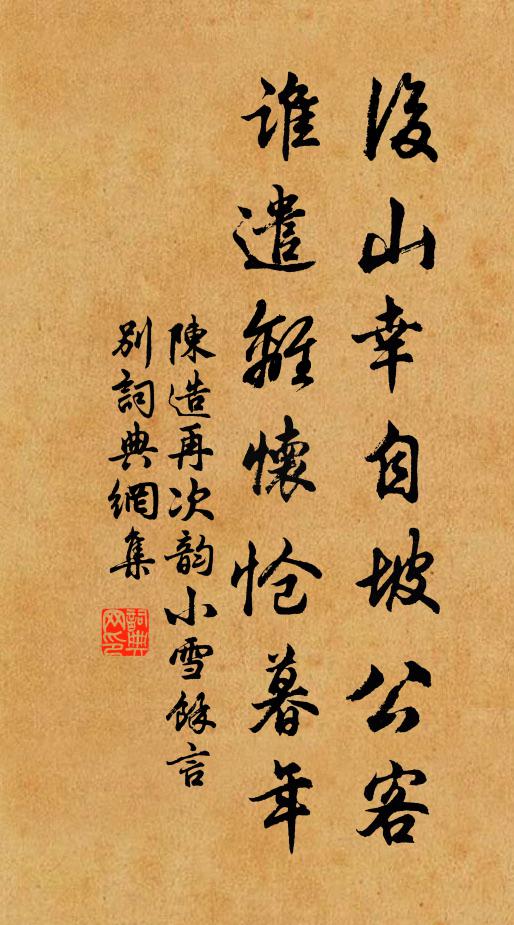 後山幸自坡公客
誰遣離懷愴暮年
陳造再次韵小雪餘言
別詞典網集
詞典网印